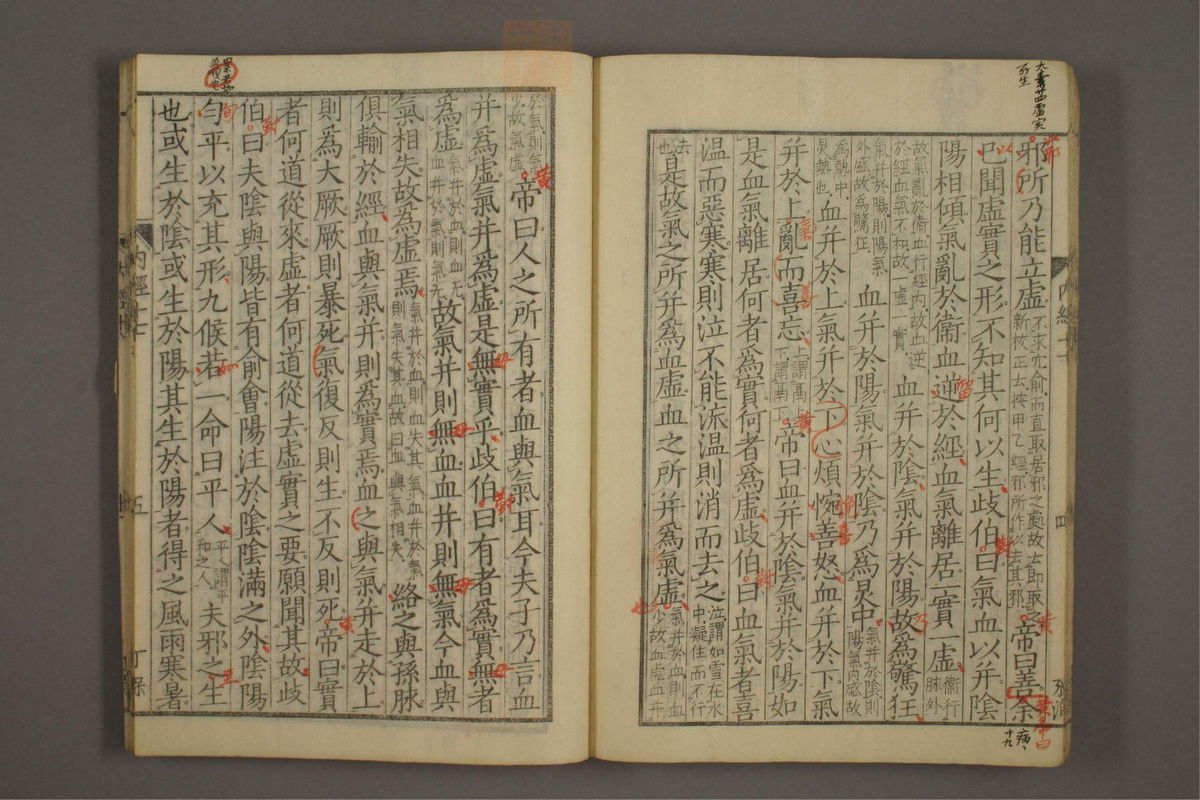 邪所乃能立虛不求穴俞而直取居邪之處故去即取之
新校正云按甲乙經邪所作以去其邪帝曰善余
已聞虛實之形不知其何以生歧伯曰氣血以并陰
陽相傾氣亂於衞血逆於經血氣離居一實一虛衞行脉外
故氣亂於衞血行經內故血逆
於經血氣不和故一虛一實血并於陰氣并於陽故爲驚狂
氣并於陽則陽氣
外盛故爲驚狂血并於陽氣并於陰乃爲炅中氣并於陰則
陽氣內盛故
爲熱中
炅熱也血并於上氣并於下心煩惋善怒血并於下氣
并於上亂而喜忘上謂鬲上
下謂鬲下帝曰血并於陰氣并於陽如
是血氣離居何者爲實何者爲虛歧伯曰血氣者喜
溫而惡寒寒則泣不能流溫則消而去之泣謂如雪在水
中凝住而不行
去也是故氣之所并爲血虛血之所并爲氣虛氣并於血則血
少故血虛血并
於氣則氣
少故氣虛帝曰人之所有者血與氣耳今夫子乃言血
并爲虛氣并爲虛是無實乎歧伯曰有者爲實無者
爲虛氣并於血則血无
血并於氣則氣无故氣并則無血血并則無氣今血與
氣相失故爲虛焉氣并於血則血失其氣血并於氣
則氣失其血故曰血與氣相失絡之與孫脉
俱輸於經血與氣并則爲實焉血之與氣并走於上
則爲大厥厥則暴死氣復反則生不反則死帝曰實
者何道從來虛者何道從去虛實之要願聞其故歧
伯曰夫陰與陽皆有俞會陽注於陰陰滿之外陰陽
勻平以充其形九候若一命曰平人平謂平
和之人夫邪之生
也或生於陰或生於陽其生於陽者得之風雨寒暑
內經十七
四
內經十七
五
大素廿四虛實
所生